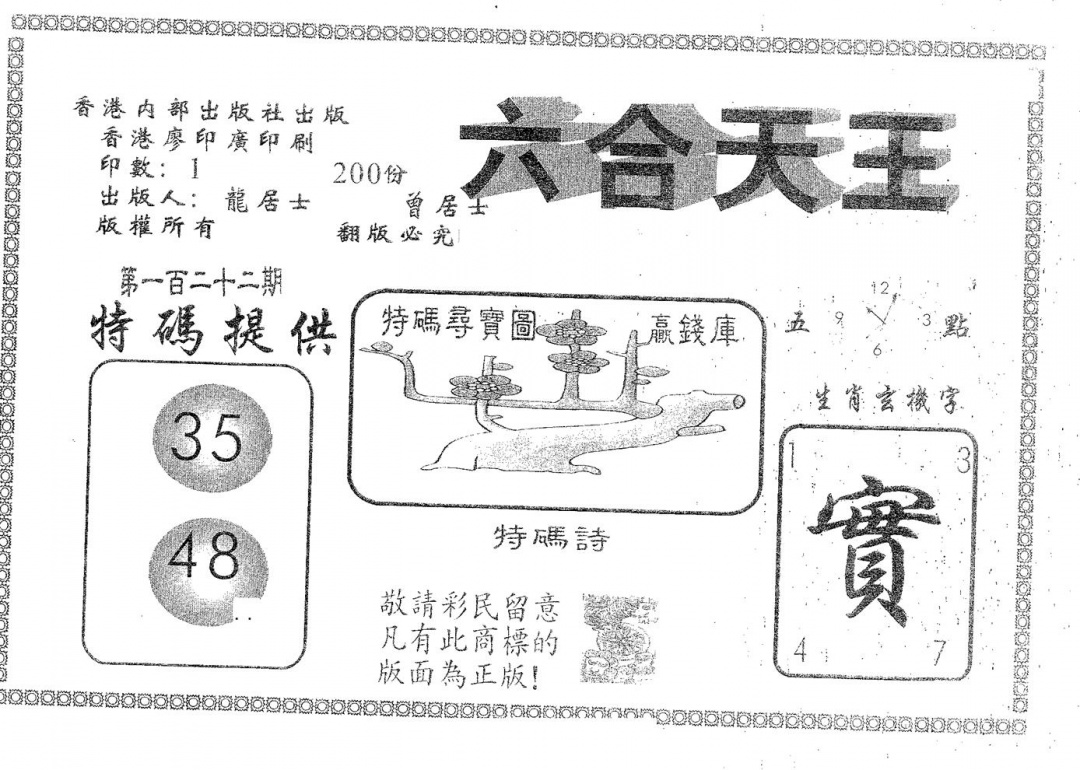 香港内部出版社出版
香港廖印廣印刷
印數：1 200份
出版人：龍居士 曾居士
版權所有 翻版必究
六合天王
第一百二十二期
特碼提供
35
48
特碼尋寶圖
贏錢庫
特碼詩
敬請彩民留意
凡有此商標的
版面為正版!
五 點
12
9 3
6
生肖玄機字
1 3
實
4 7